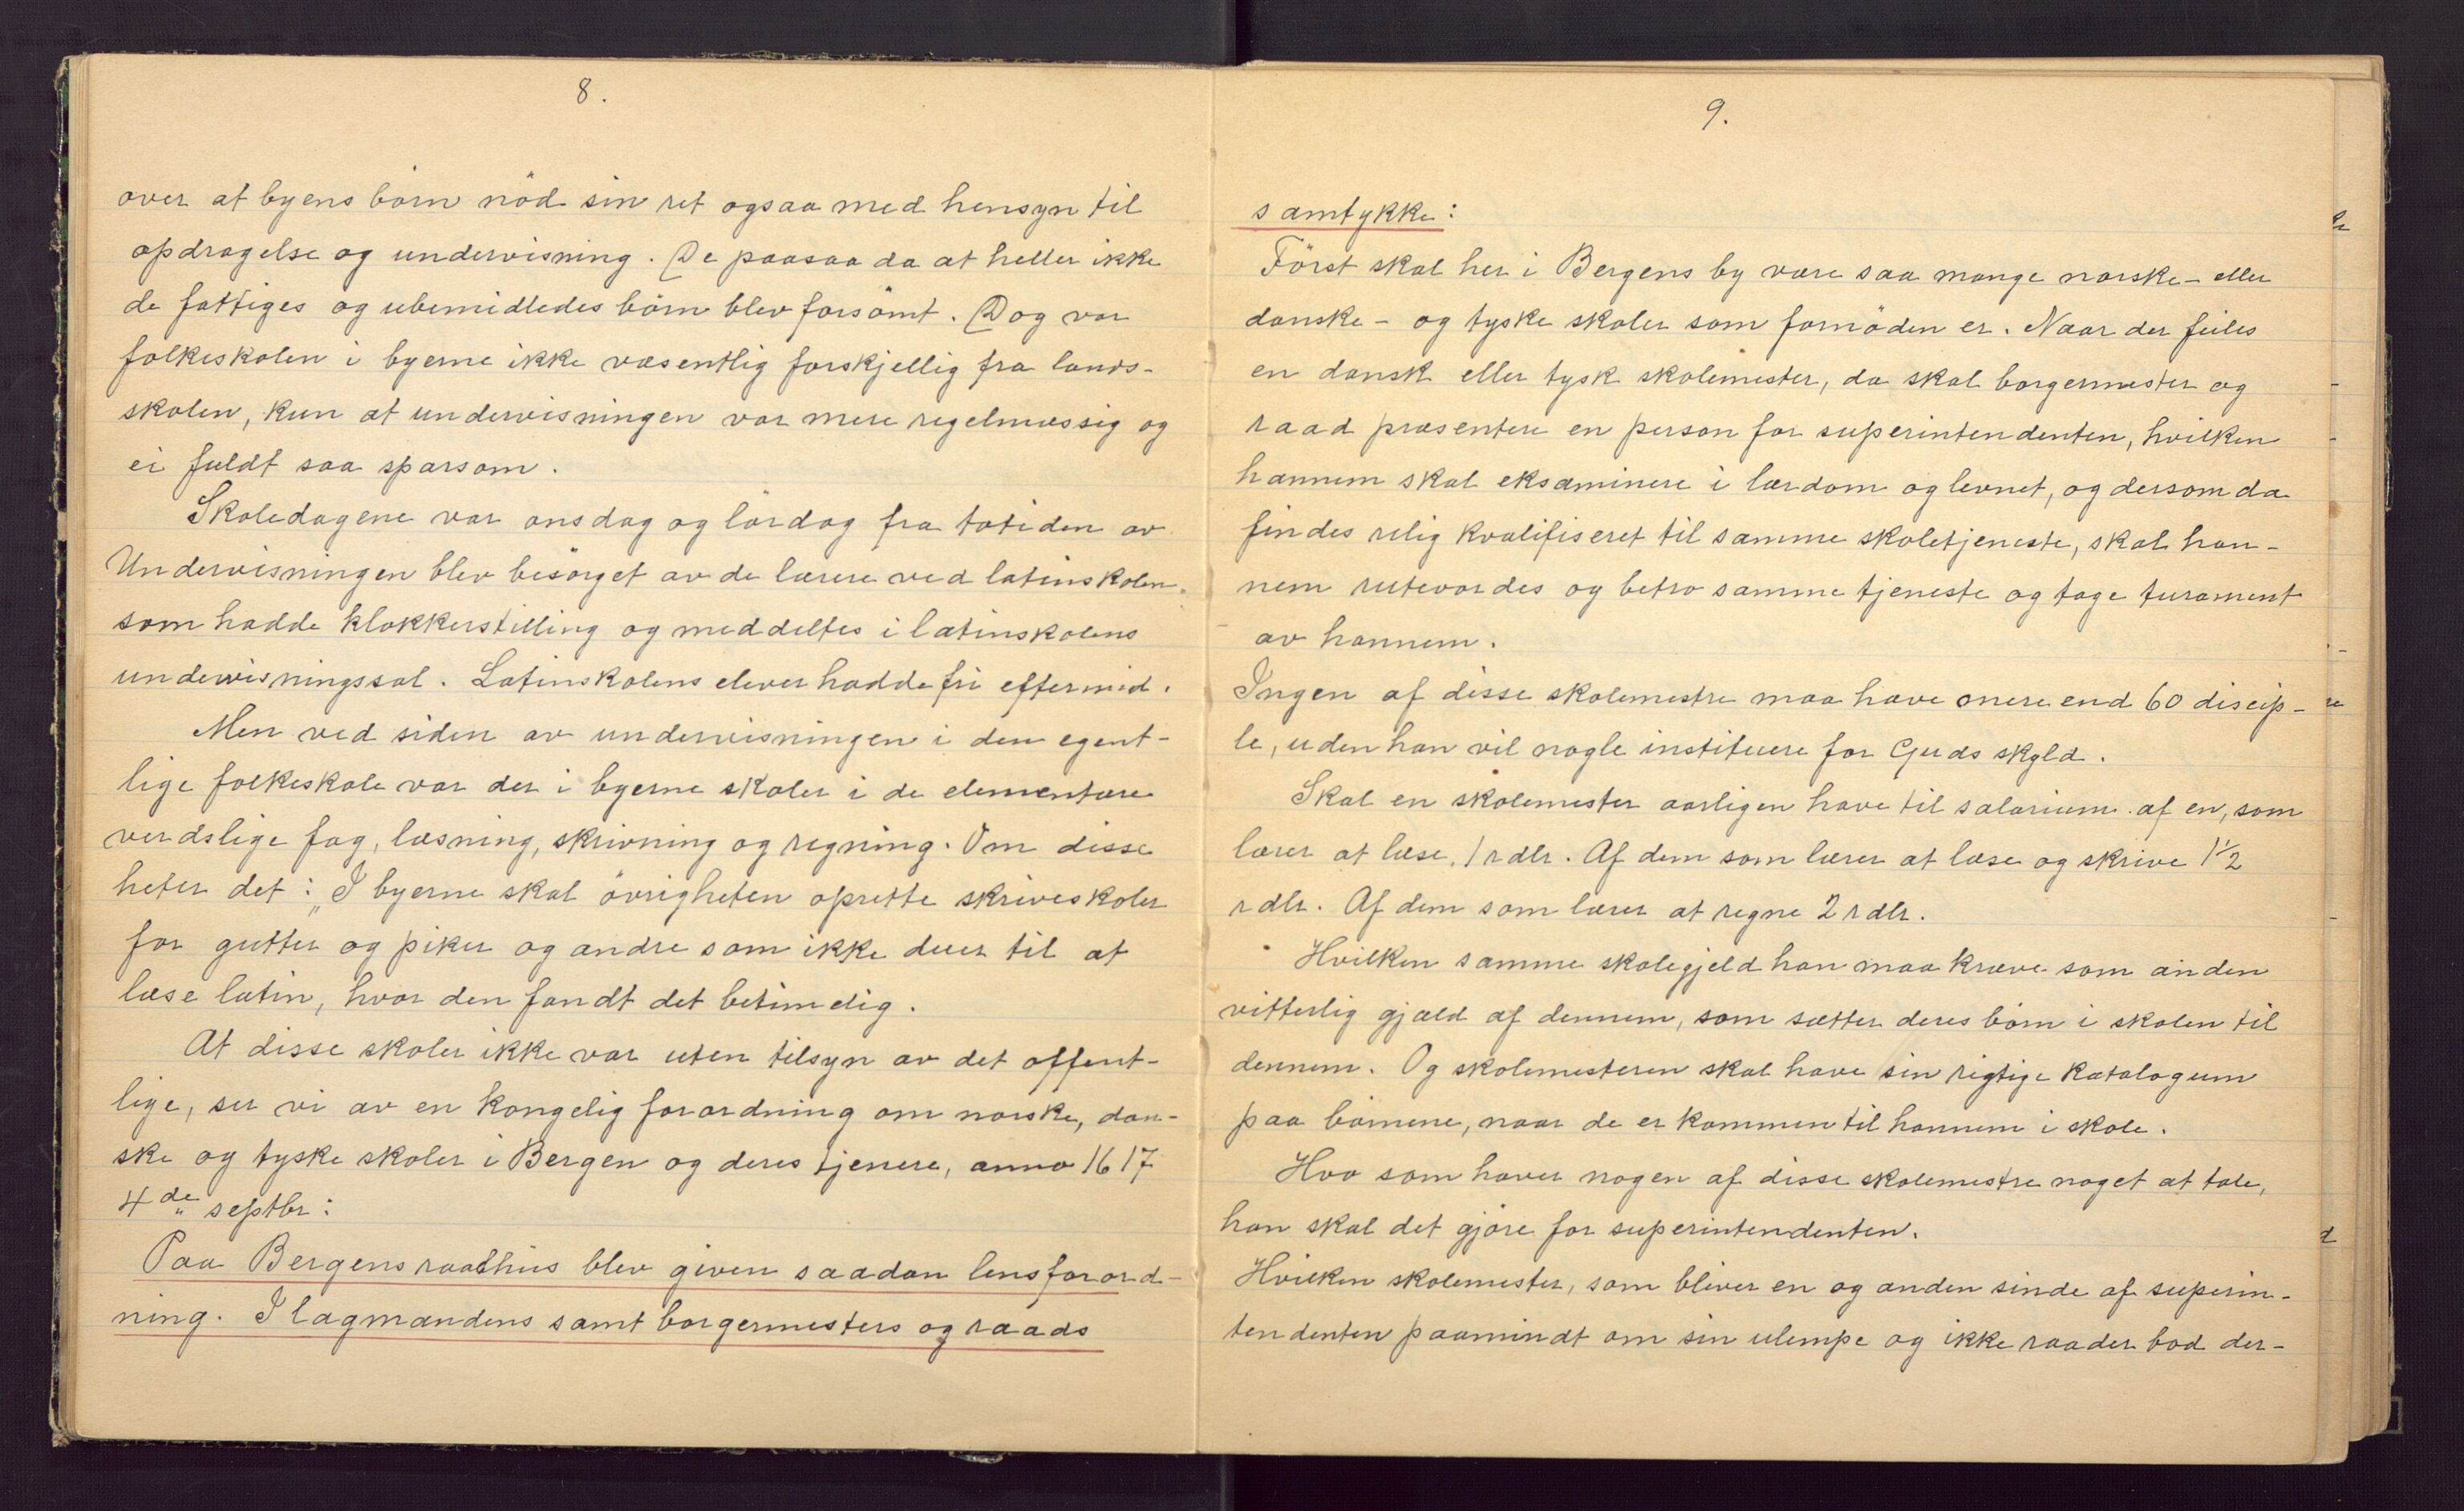 8.
over at byens börn nöd sin ret ogsaa med hensyn til
opdragelse og undervisning. De paasaa da at heller ikke
de fattiges og ubemidledes börn blev forsömt. Dog var
folkeskolen i byerne ikke væsentlig forskjellig fra lands-
skolen, kun at undervisningen var mere regelmæssig og
ei fuldt saa sparsom.
Skoledagene var onsdag og lördag fra totiden av
Undervisningen blev besörget av de lærere ved latinskolen.
som hadde klokkerstilling og meddeltes i latinskolens
undervisningssal. Latinskolens elever hadde fri eftermid.
Men ved siden av undervisningen i den egent-
lige folkeskole var der i byerne skoler i de elementære
verdslige fag, læsning, skrivning og regning. Om disse
heter det: „I byerne skal övrigheten oprette skriveskoler
for gutter og piker og andre som ikke duer til at
læse latin, hvor den fandt det betimelig.
At disse skoler ikke var uten tilsyn av det offent-
lige, ser vi av en kongelig forordning om norske, dan-
ske og tyske skoler i Bergen og deres tjenere, anno 1617
4de septbr:
Paa Bergens raathus blev given saadan lensforord-
ning. I lagmandens samt borgermesters og raads
9.
samtykke:
Först skal her i Bergens by være saa mange norske- eller
danske- og tyske skoler som fornöden er. Naar der feiles
en dansk eller tysk skolemester, da skal borgermester og
raad præsentere en person for superintendenten, hvilken
hannem skal eksaminere i lærdom og levnet, og dersom da
findes relig kvalifiseret til samme skoletjeneste, skal han-
nem rutevordes og betro samme tjeneste og tage turament
av hannem.
Ingen af disse skolemestre maa have mere end 60 discip-
le, uden han vil nogle instituere for Guds skyld.
Skal en skolemester aarligen have til salarium af en, som
lærer at læse, 1 rdlr. Af dem som lærer at læse og skrive 1½
rdlr. Af dem som lærer at regne 2 rdlr.
Hvilken samme skolegjeld han maa kræve som anden
vitterlig gjæld af dennem, som sætter deres börn i skolen til
dennem. Og skolemesteren skal have sin rigtige Katalogum
paa börnene, naar de er kommen til hannem i skole.
Hvo som haver nogen af disse skolemestre noget at tale,
han skal det gjöre for superintendenten.
Hvilken skolemester, som bliver en og anden sinde af superin-
tendenten paamindt om sin ulempe og ikke raader bod der-